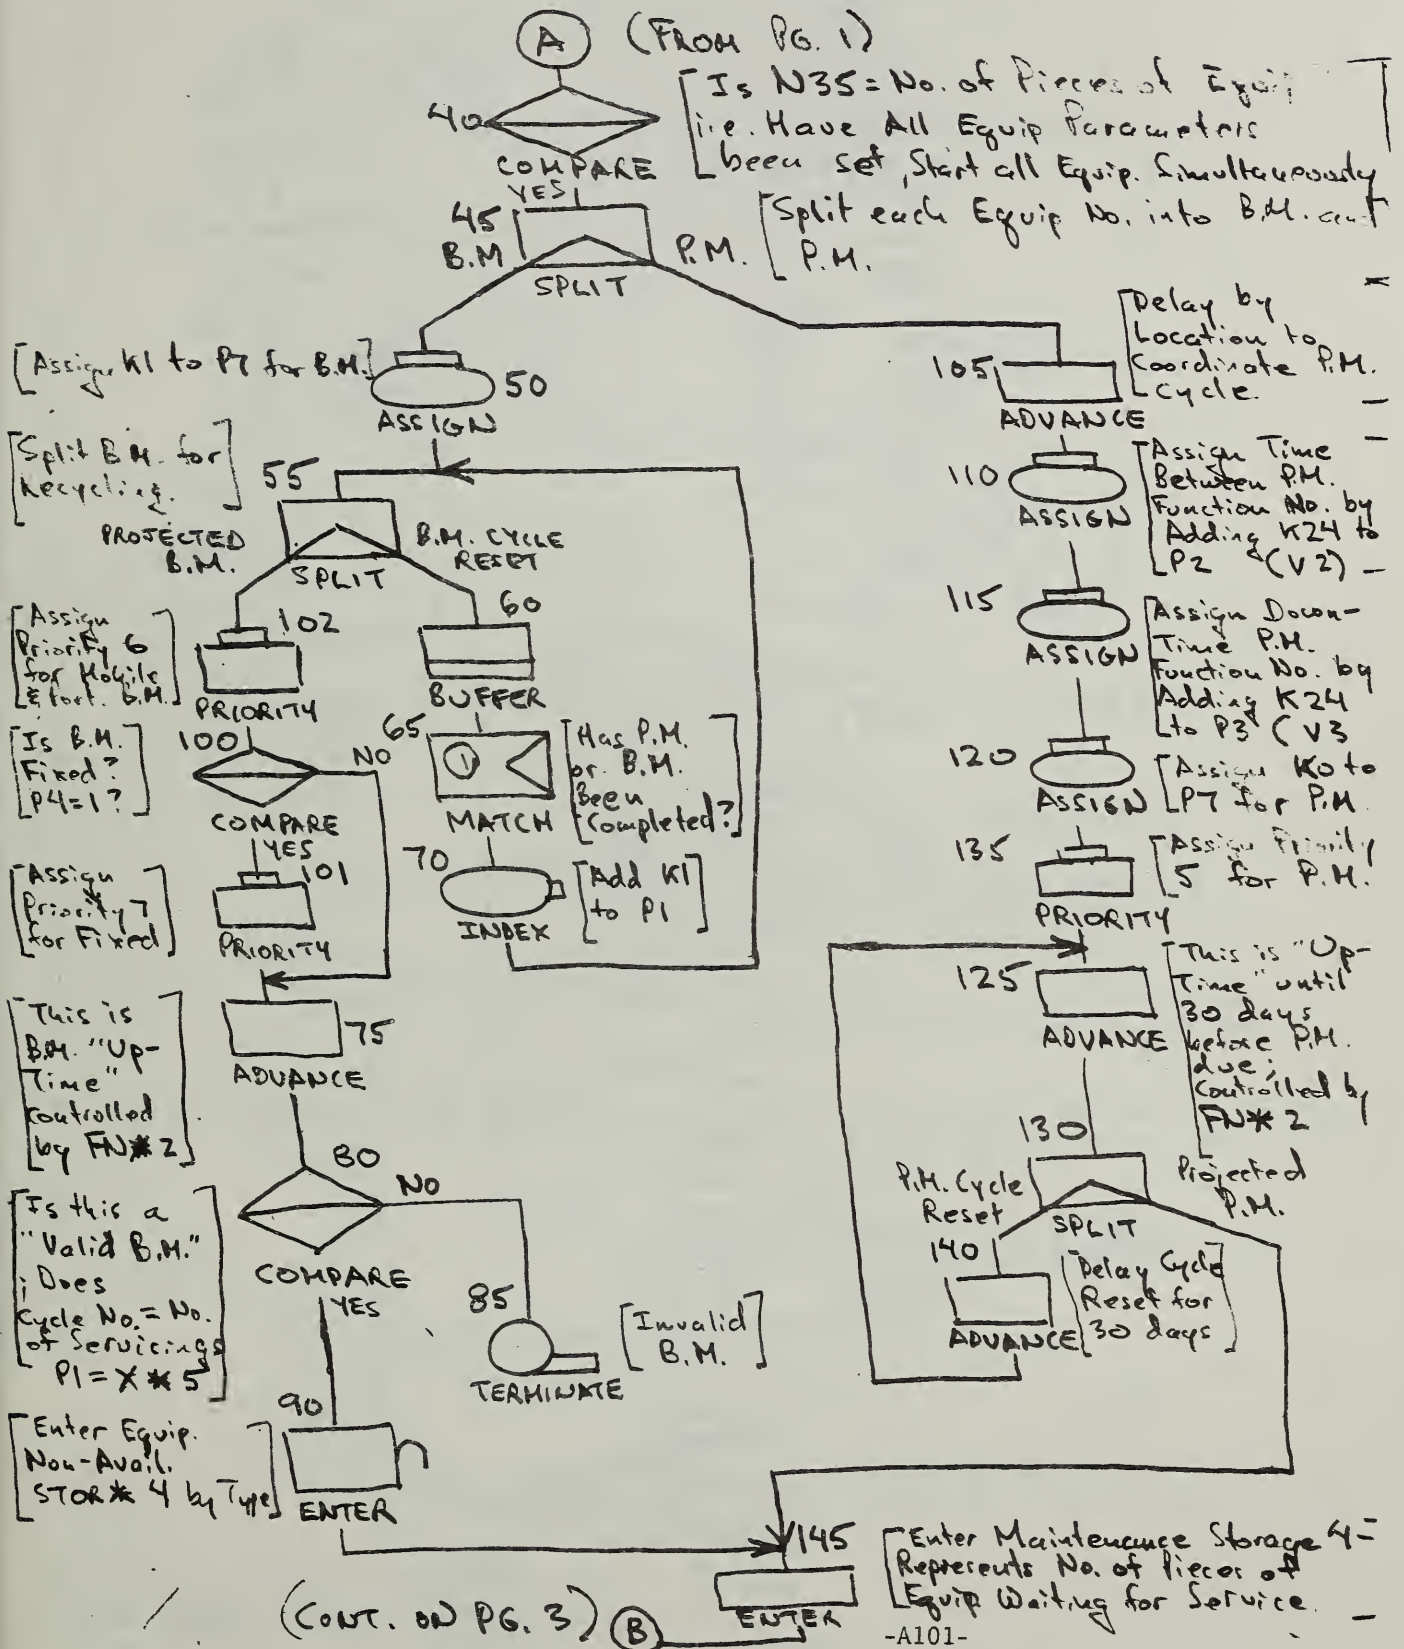 A (FROM PG. 1)
40
COMPARE
YES
[Is N35 = No. of Pieces of Equip
i.e. Have All Equip Parameters
been set, Start all Equip. Simultaneously
45
B.M
P.M.
SPLIT
[Split each Equip No. into B.M. and
P.M.
[Assign K1 to P7 for B.M.]
50
ASSIGN
[Split B.M. for
Recycling.]
55
PROJECTED
B.M.
SPLIT
B.M. CYCLE
RESET
[Assign
Priority 6
for Mobile
& Port. B.M.]
102
PRIORITY
60
BUFFER
[Is B.M.
Fixed?
P4=1?]
100
NO
COMPARE
YES
65
1
MATCH
[Has P.M.
or B.M.
Been
Completed?]
[Assign
Priority 7
for Fixed]
101
PRIORITY
70
INDEX
[Add K1
to P1]
[This is
B.M. "Up-
Time"
controlled
by FN*2]
75
ADVANCE
80
NO
COMPARE
YES
[Is this a
"Valid B.M."
; Does
Cycle No. = No.
of Servicings
P1 = X*5]
85
TERMINATE
[Invalid
B.M.]
[Enter Equip.
Non-Avail.
STOR*4 by Type]
90
ENTER
105
ADVANCE
[Delay by
Location to
Coordinate P.M.
Cycle.
110
ASSIGN
[Assign Time
Between P.M.
Function No. by
Adding K24 to
P2 (V2)
115
ASSIGN
[Assign Down-
Time P.M.
Function No. by
Adding K24
to P3 (V3
120
ASSIGN
[Assign K0 to
P7 for P.M.
135
PRIORITY
[Assign Priority
5 for P.M.
125
ADVANCE
[This is "Up-
Time" until
30 days
before P.M.
due;
Controlled by
FN*2
130
P.M. Cycle
Reset
SPLIT
Projected
P.M.
140
ADVANCE
[Delay Cycle
Reset for
30 days]
145
ENTER
[Enter Maintenance Storage 4=
Represents No. of Pieces of
Equip Waiting for Service.
(CONT. ON PG. 3) B
-A101-